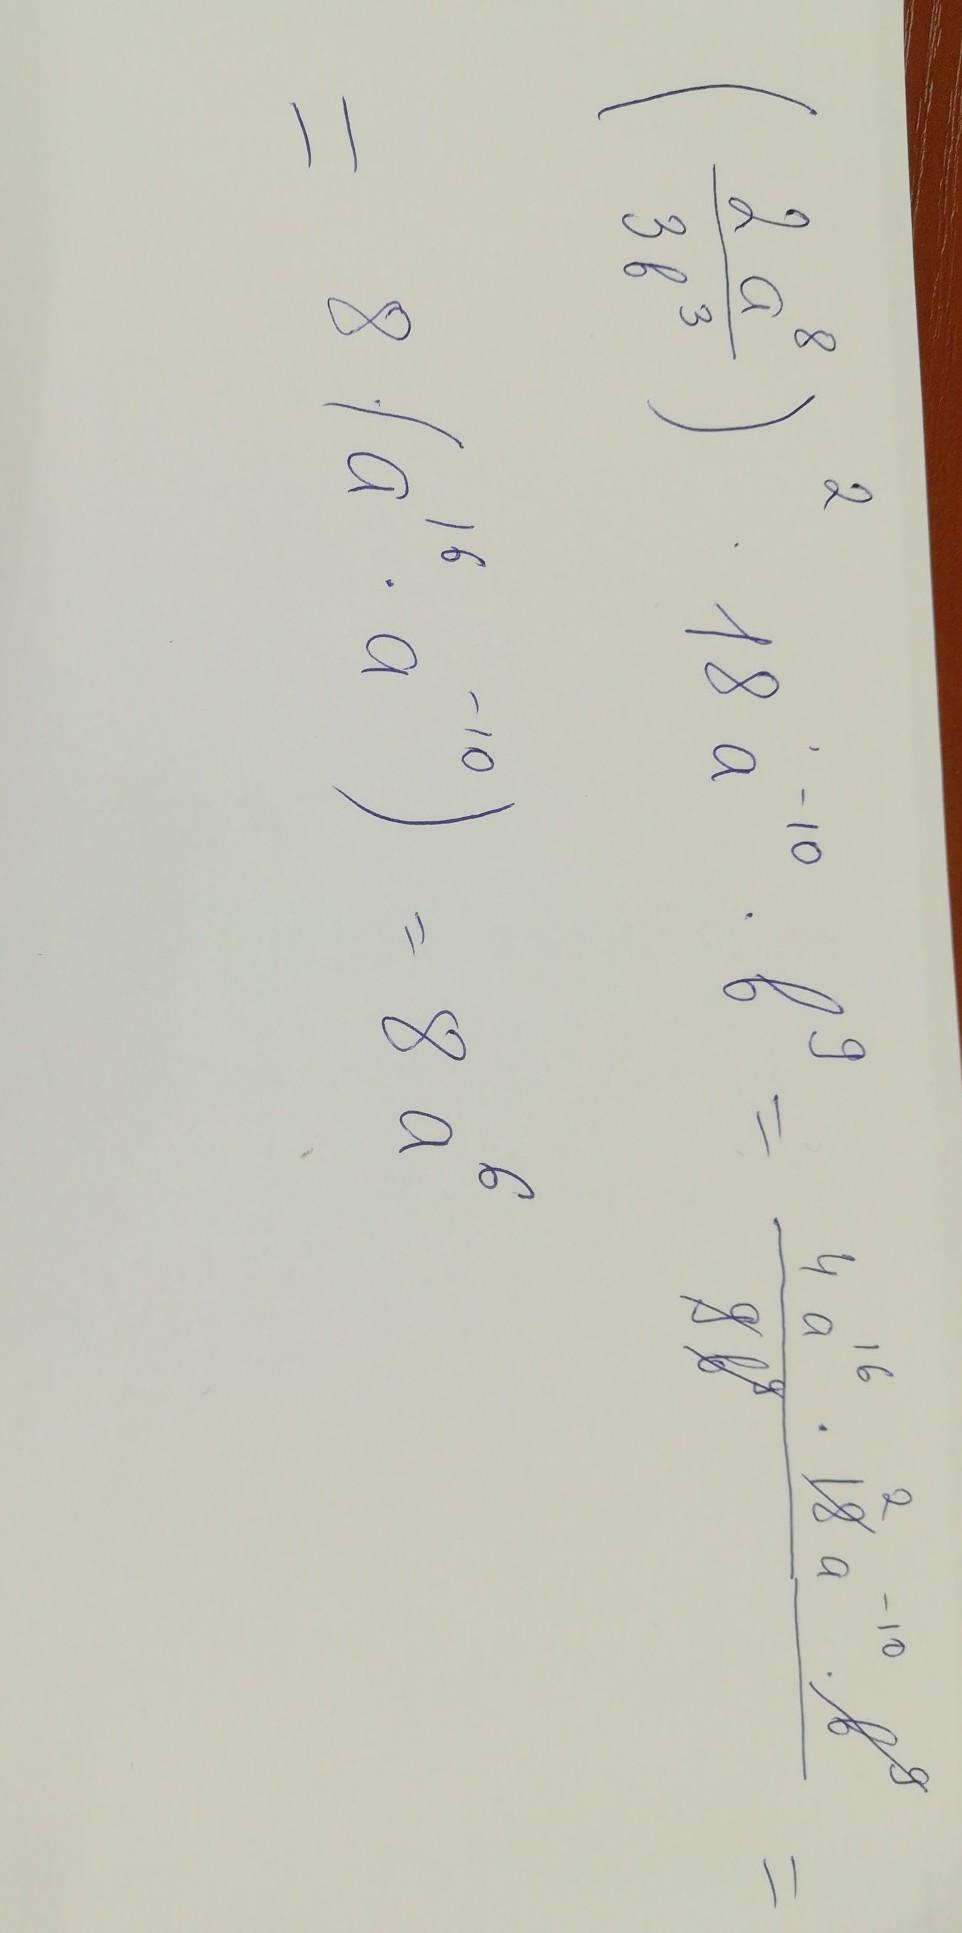 (2a⁸/3b³)² · 18a⁻¹⁰ · b⁹ = 4a¹⁶ · 18² a⁻¹⁰ · b⁹/9b⁹ =
= 8(a¹⁶ · a⁻¹⁰) = 8a⁶